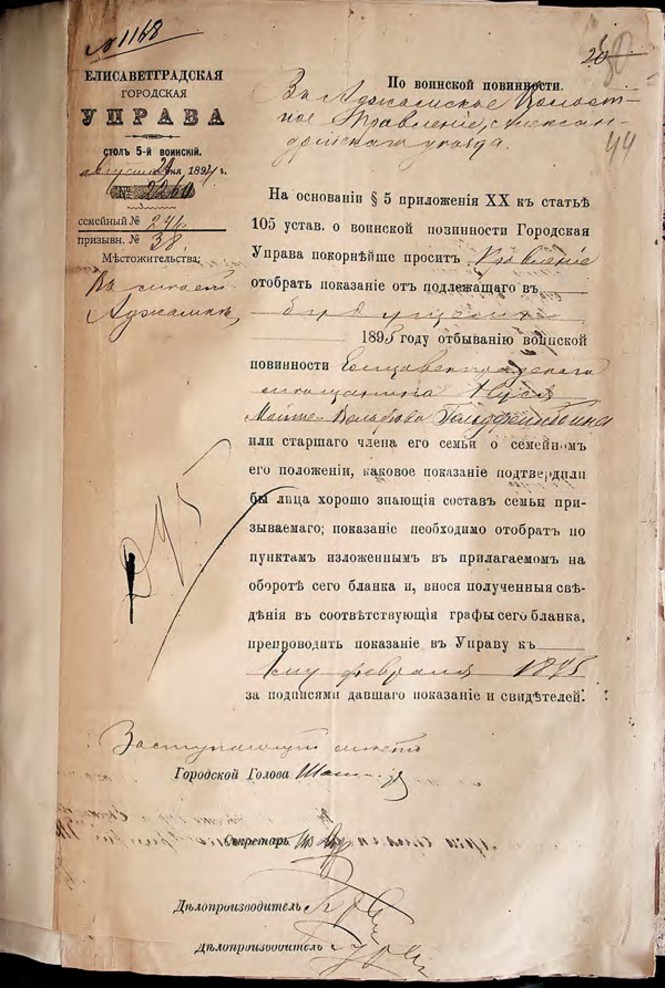 № 1168
ЕЛИСАВЕТГРАДСКАЯ
ГОРОДСКАЯ
УПРАВА
СТОЛЪ 5-й ВОИНСКІЙ.
августа 29 дня 1894 г.
№ 2260
семейный № 246
призывн. № 38
Мѣстожительства:
Въ
Аджамкѣ
20
44
По воинской повинности.
Въ Аджамское Волост-
ное Правленіе, Алексан-
дрійскаго уѣзда.
На основаніи § 5 приложенія XX къ статьѣ
105 устав. о воинской повинности Городская
Управа покорнѣйше проситъ Правленіе
отобрать показаніе отъ подлежащаго въ
будущемъ
1895 году отбыванію воинской
повинности Елисаветградскаго
мѣщанина
или старшаго члена его семьи о семейномъ
его положеніи, каковое показаніе подтвердили
бы лица хорошо знающія составъ семьи при-
зываемаго; показаніе необходимо отобрат по
пунктамъ изложеннымъ въ прилагаемомъ на
оборотѣ сего бланка и, внося полученныя свѣ-
дѣнія въ соотвѣтствующія графы сего бланка,
препроводить показаніе въ Управу къ
1му февраля 1895
за подписями давшаго показаніе и свидѣтелей.
Заступающій мѣсто
Городской Голова
Секретарь
Дѣлопроизводитель
Дѣлопроизводитель